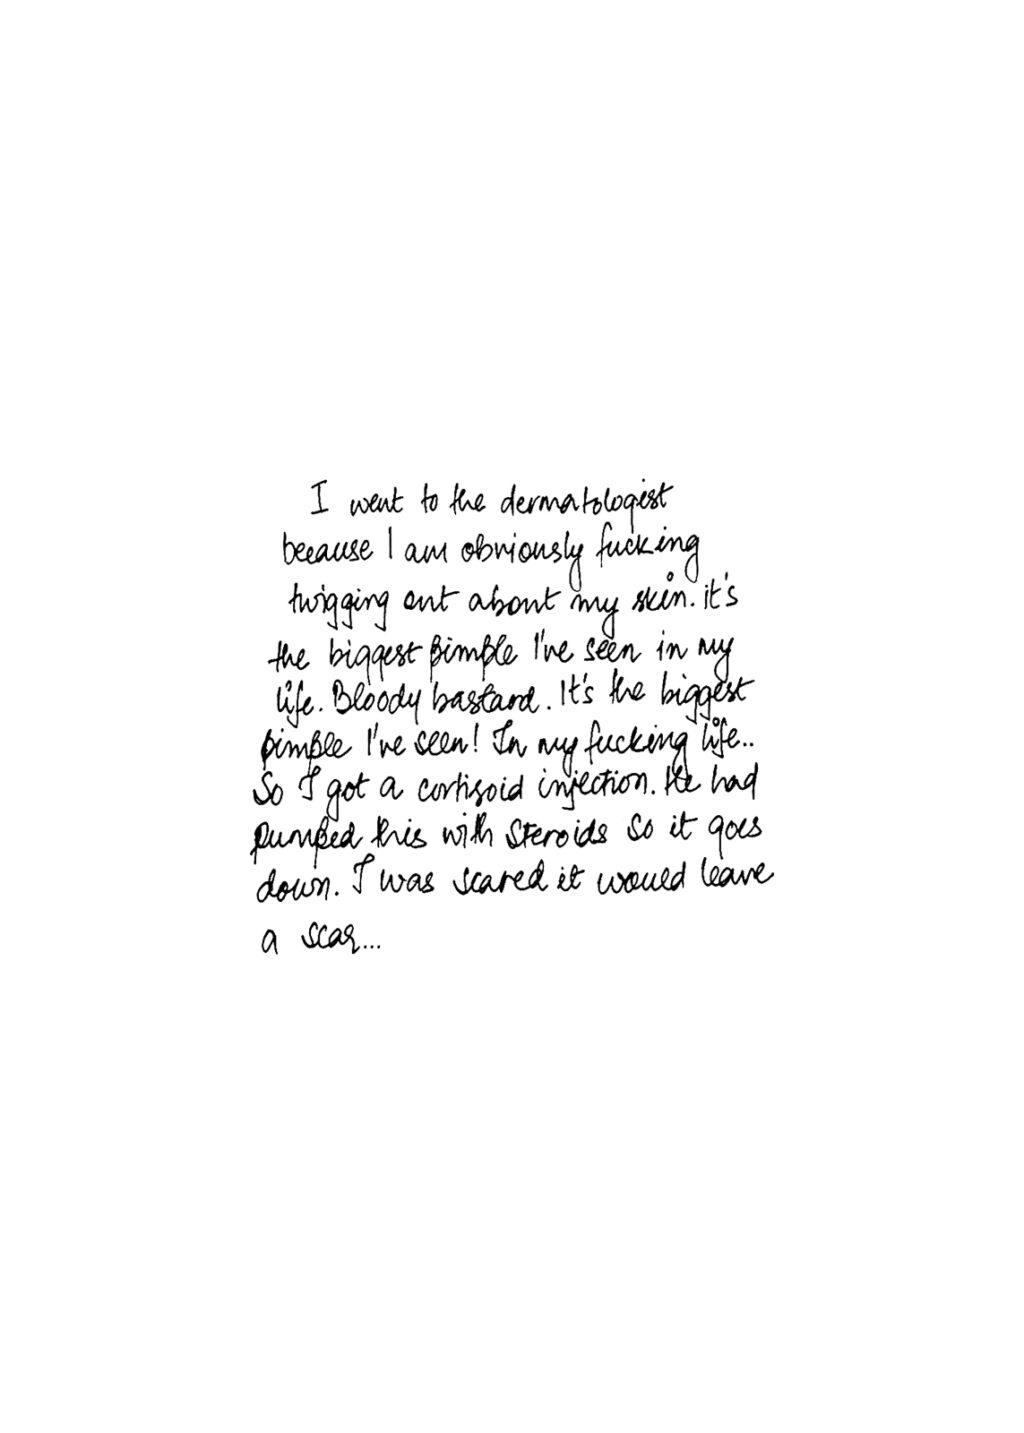 I went to the dermatologist
because I am obviously fucking
twigging out about my skin. it's
the biggest pimple I've seen in my
life. Bloody bastard. It's the biggest
pimple I've seen! In my fucking life..
So I got a cortisoid injection. He had
pumped this with steroids so it goes
down. I was scared it would leave
a scar...